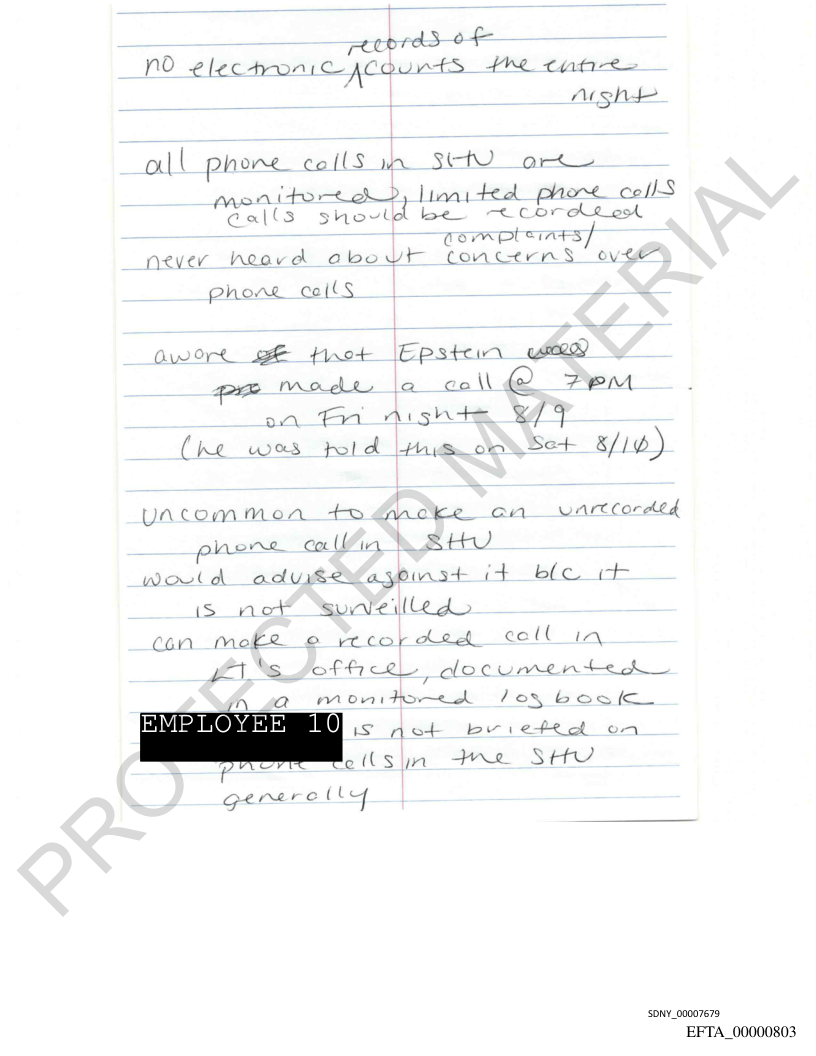 records of
no electronic ^ counts the entire
night
all phone calls in SHU are
monitored, limited phone calls
calls should be recordeed
complaints/
never heard about concerns over
phone calls
aware of that Epstein was
pre made a call @ 7 PM
on Fri night 8/9
(he was told this on Sat 8/10)
uncommon to make an unrecorded
phone call in SHU
would advise against it b/c it
is not surveilled
can make a recorded call in
LT's office, documented
in a monitored log book
EMPLOYEE 10 is not briefed on
phone calls in the SHU
generally
PROTECTED MATERIAL
SDNY_00007679
EFTA_00000803